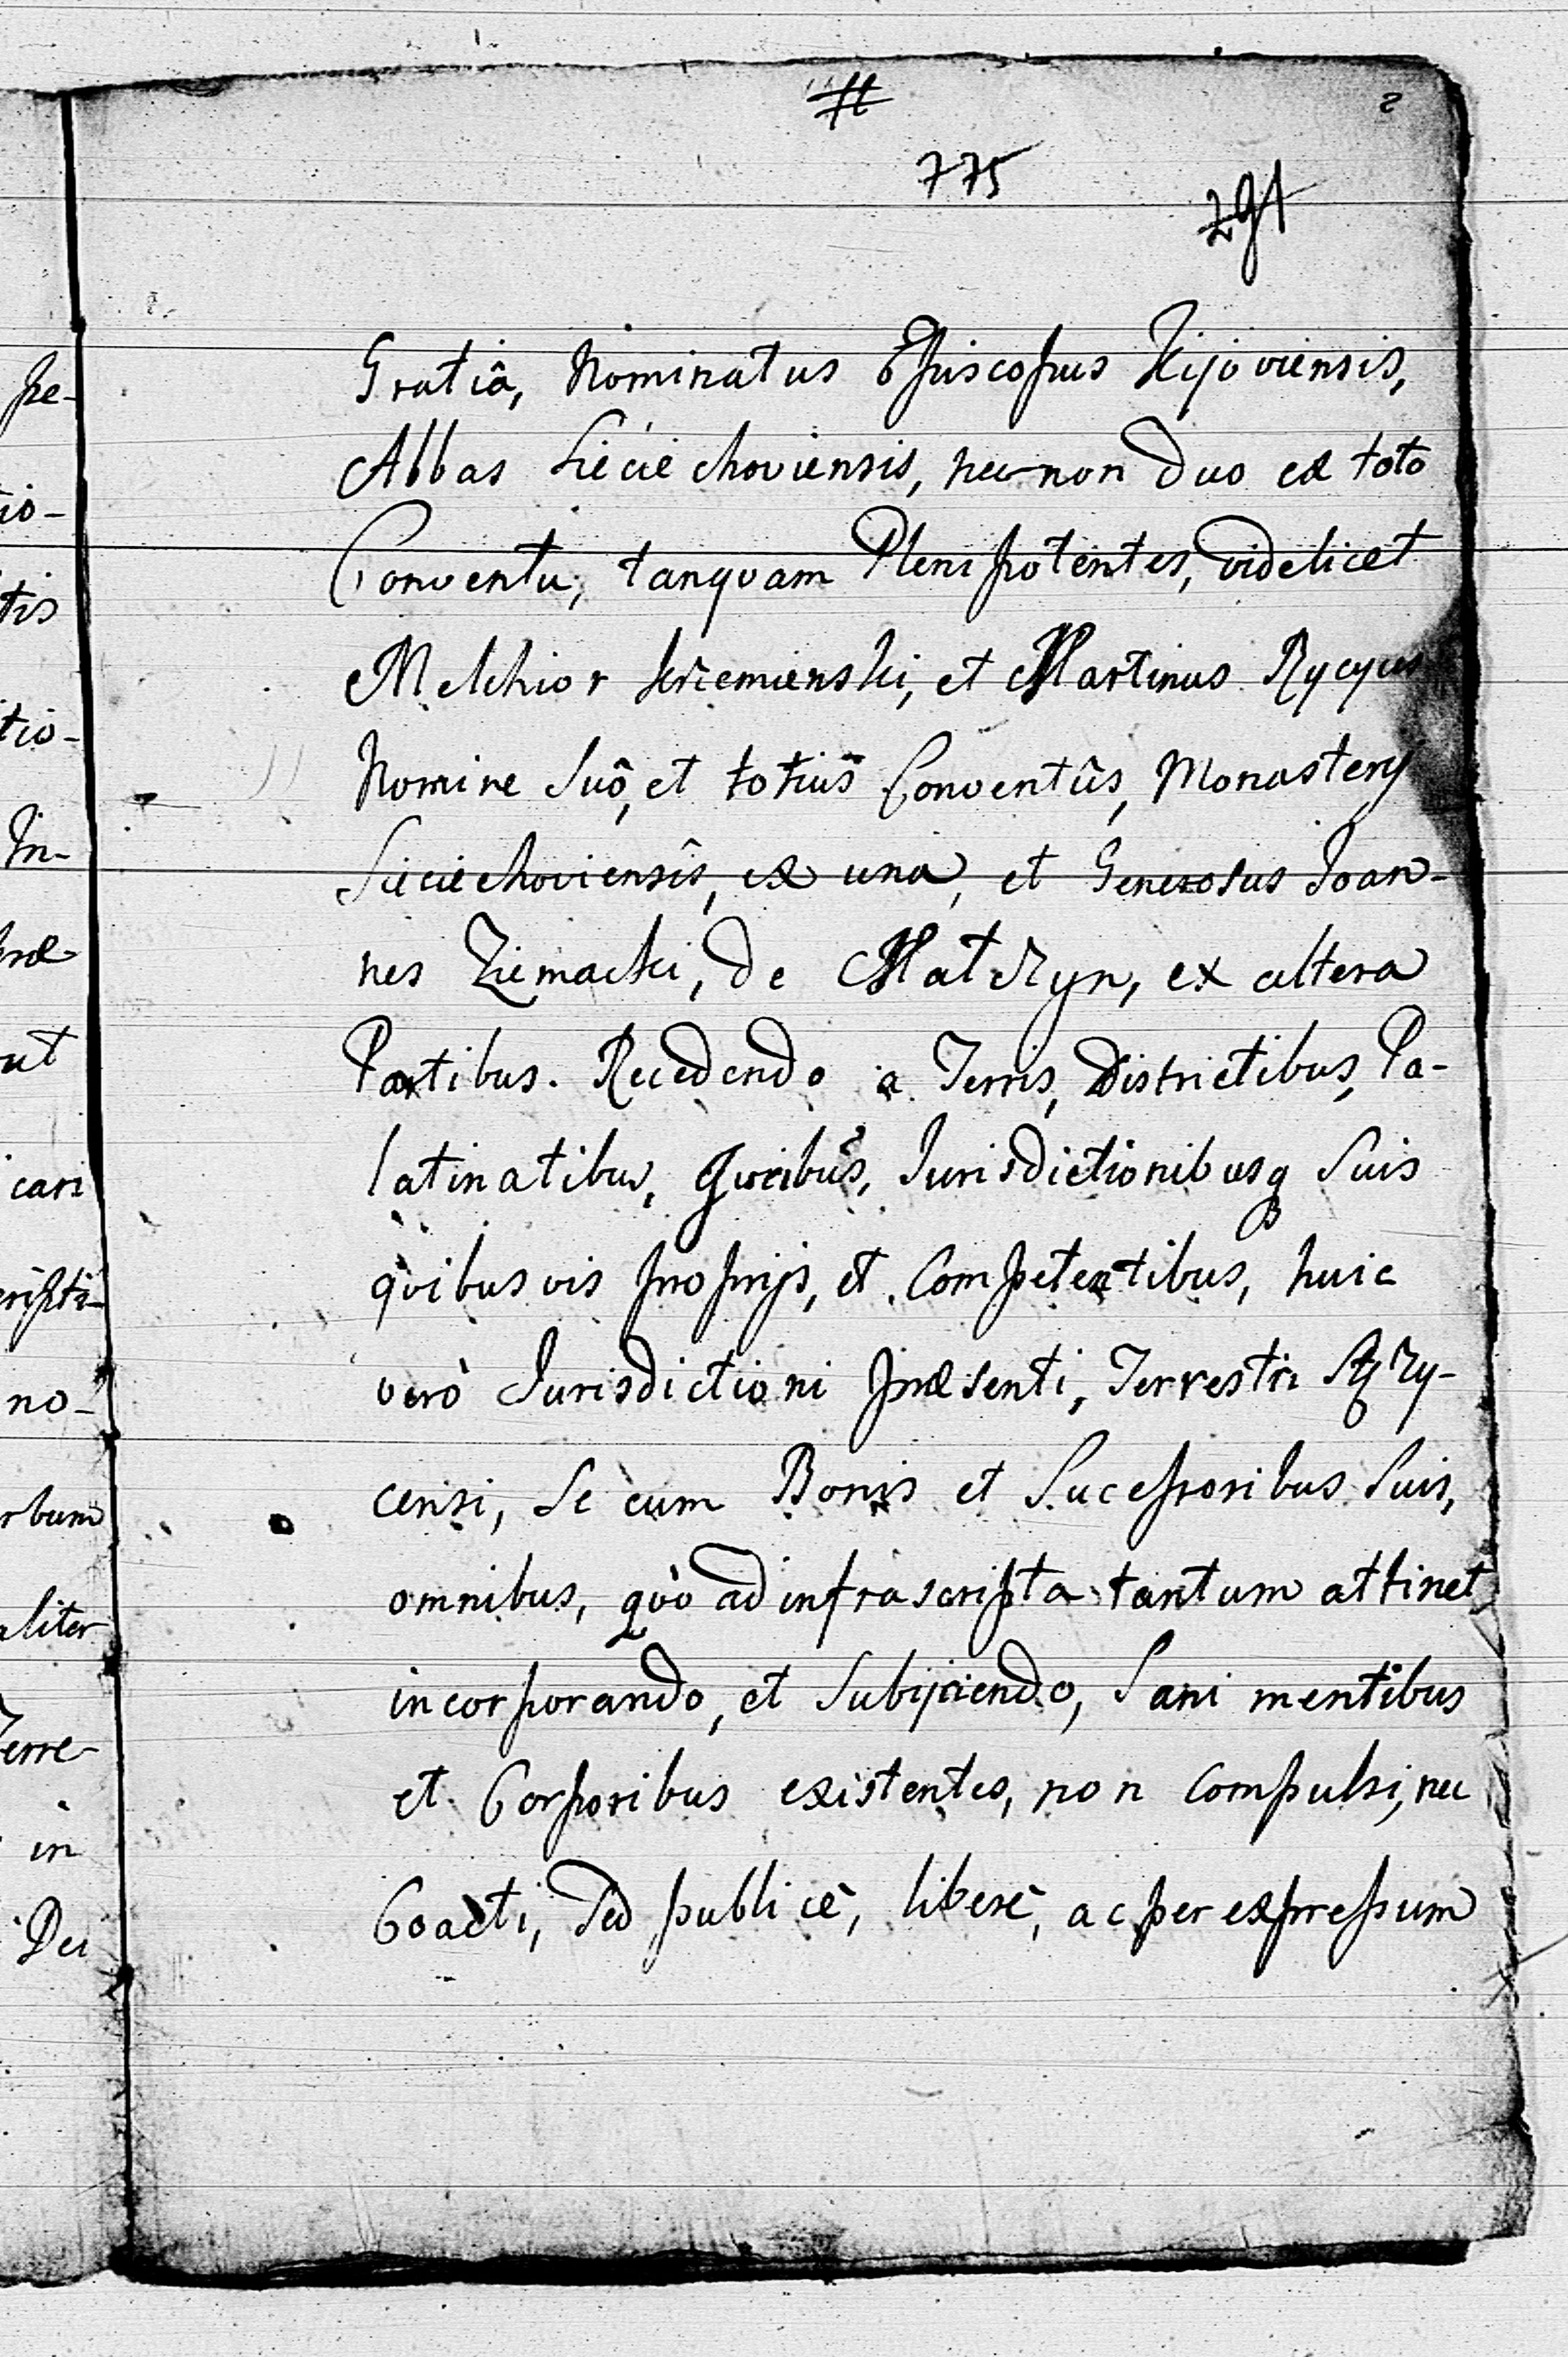 2
775
291
pe-
Gratiâ, Nominatus Episcopus Kijoviensis,
Abbas Siecie choviensis, nec non Duo ex toto
io-
Conventu, tanqvam Plenipotentes, videlicet
tis
Melchior Krzemienski, et Martinus Rycycus
tio-
Nomine Suô, et totius Conventûs, Monastery
In-
Sieciechoviensis, ex una, et Generosus Joan-
nes Ziemacki, de Matczyn, ex altera
Partibus. Recedendo a Terris, Districtibus, Pa-
ut
latinatibus, Foribus, Jurisdictionibusq Suis
cari
qvibusvis proprijs, et Competentibus, huic
cripti-
verò Jurisdictioni præsenti, Terrestri Stęży-
no-
censi, Se cum Bonis et Sucessoribus Suis,
rbum
omnibus, qvò ad infrascripta tantum attinet
aliter
incorporando, et Subijciendo, Sani mentibus
Terre-
et Corporibus existentes, non Compulsi, nec
in
Coacti, Sed publicè, liberè, ac per expressum
Dei